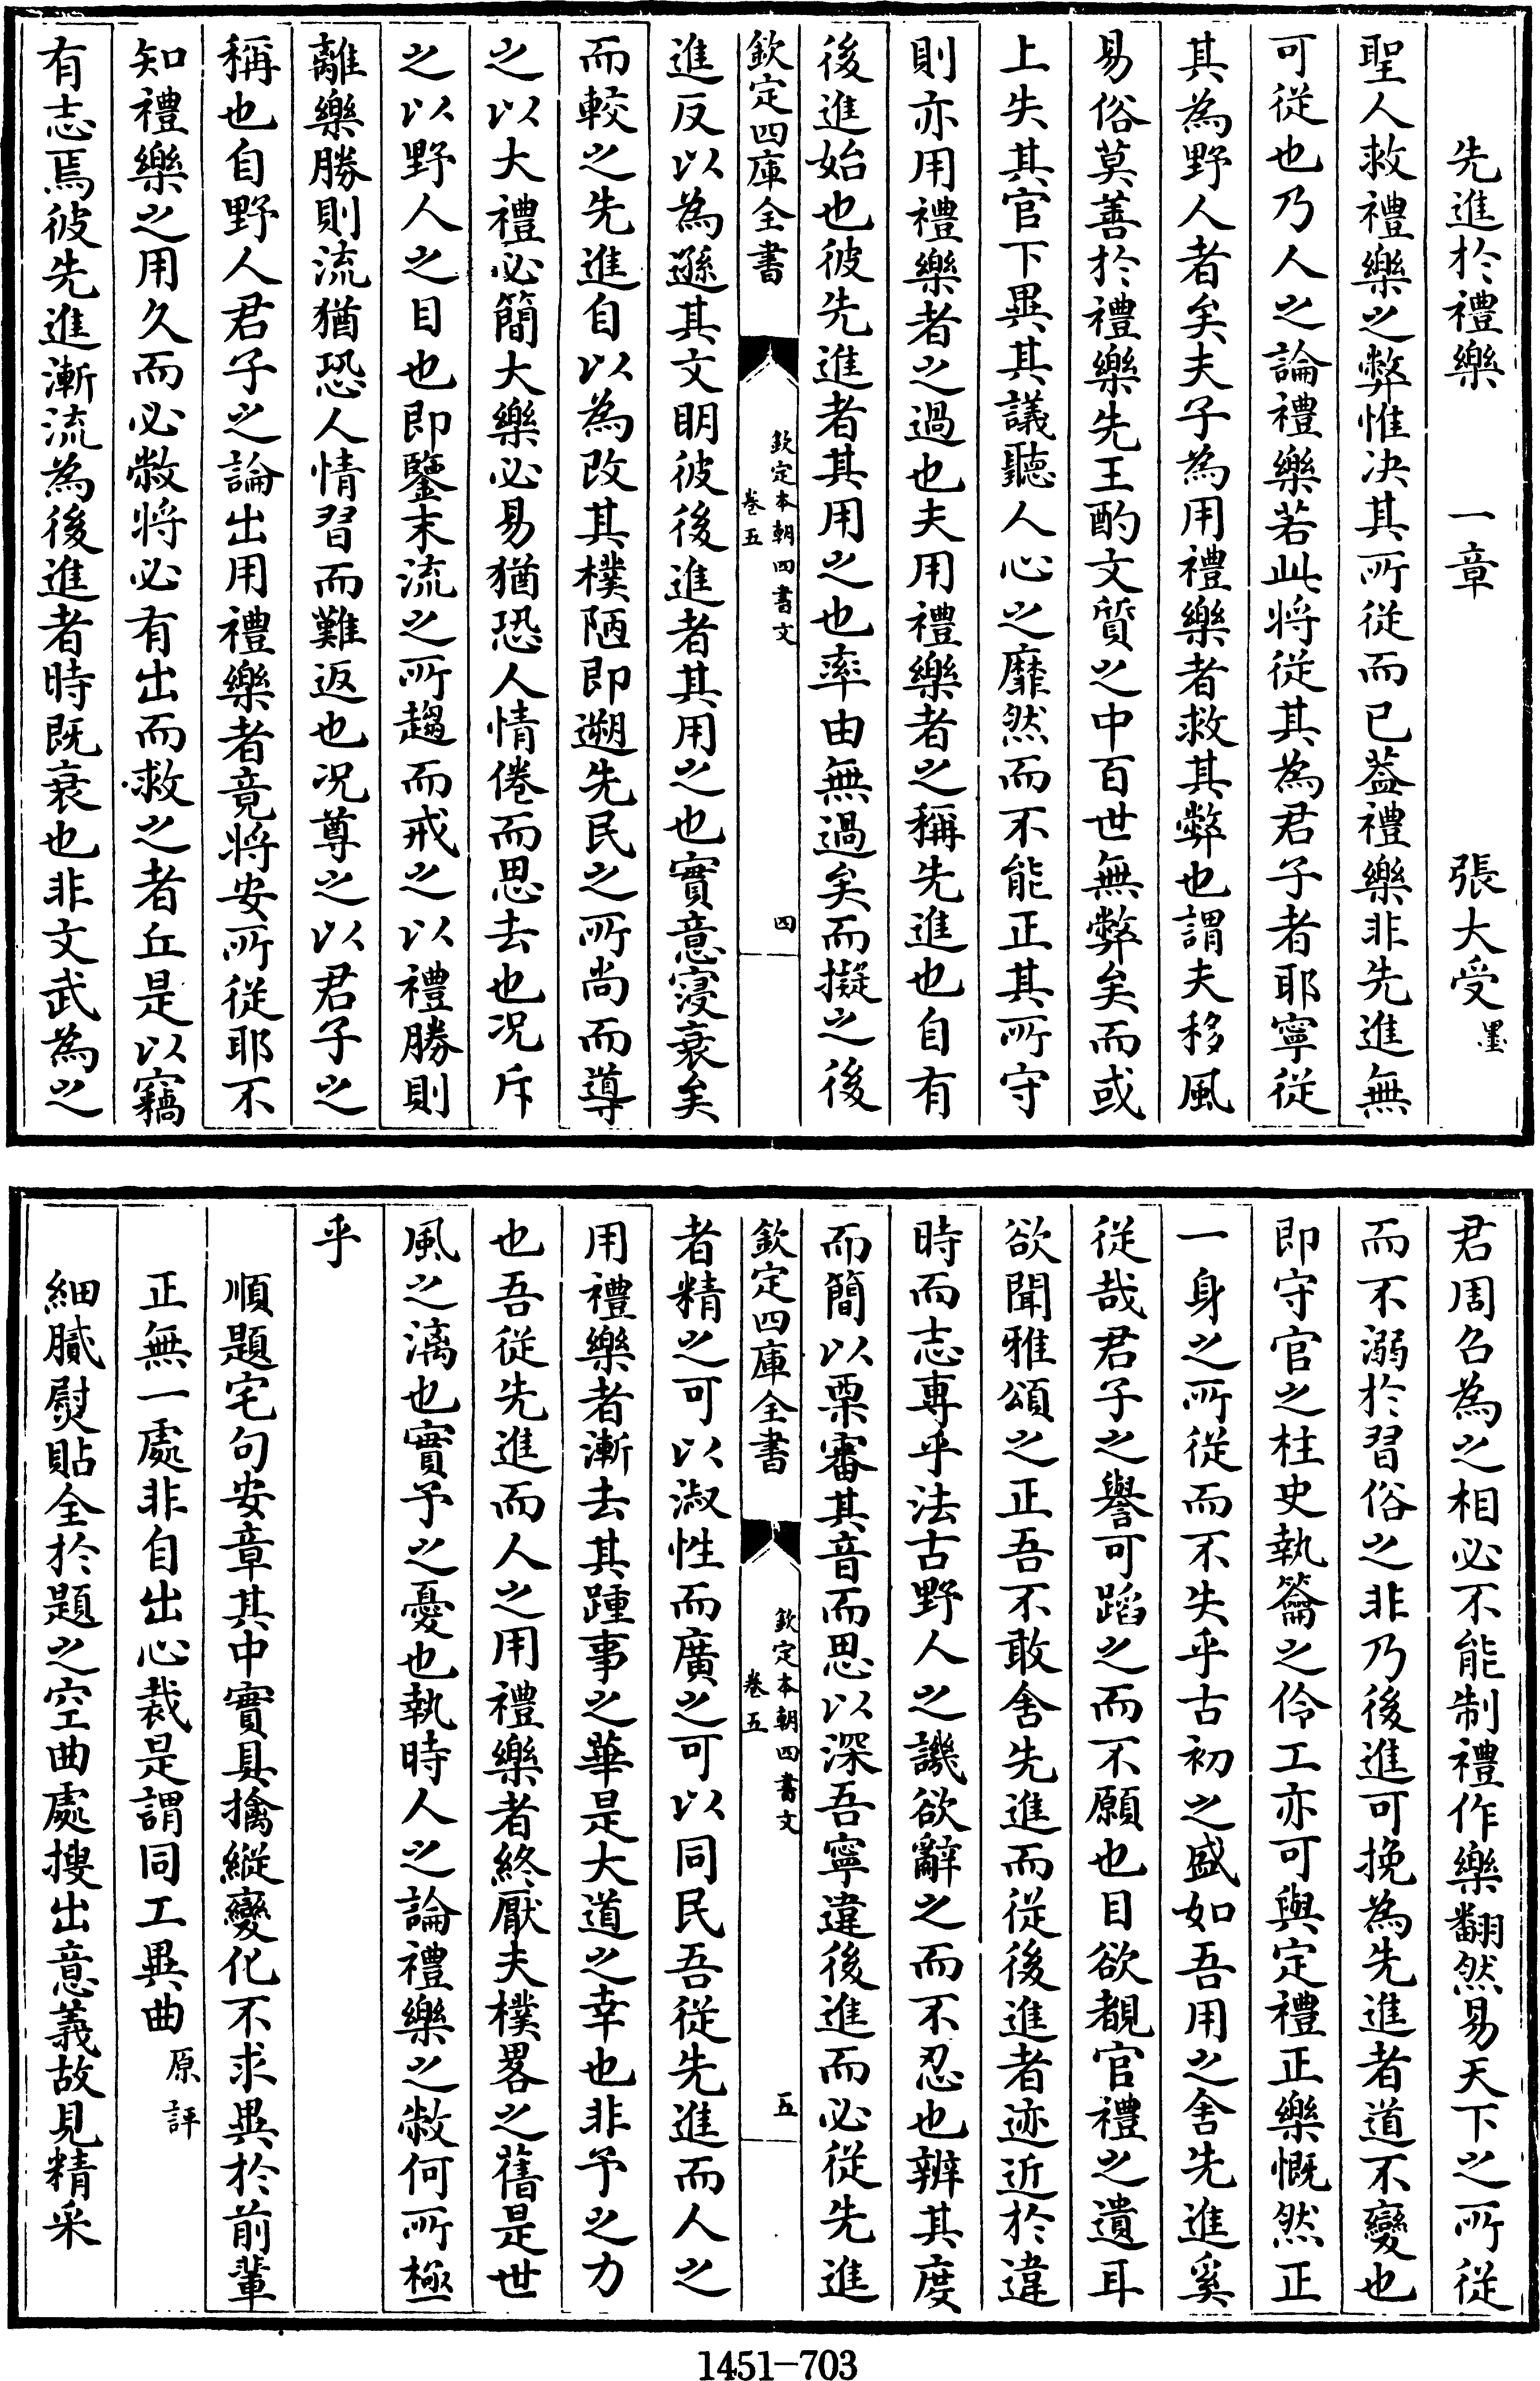 先進於禮樂　一章　張大受墨
聖人救禮樂之弊惟决其所從而已葢禮樂非先進無
可從也乃人之論禮樂若此将從其為君子者耶寧從
其為野人者矣夫子為用禮樂者救其弊也謂夫移風
易俗莫善於禮樂先王酌文質之中百世無弊矣而或
上失其官下異其議聽人心之靡然而不能正其所守
則亦用禮樂者之過也夫用禮樂者之稱先進也自有
後進始也彼先進者其用之也率由無過矣而擬之後
欽定四庫全書
欽定本朝四書文
卷五
四
進反以為遜其文明彼後進者其用之也實意寖衰矣
而較之先進自以為改其樸陋即遡先民之所尚而導
之以大禮必簡大樂必易猶恐人情倦而思去也况斥
之以野人之目也即鑒末流之所趨而戒之以禮勝則
離樂勝則流猶恐人情習而難返也况尊之以君子之
稱也自野人君子之論出用禮樂者竟将安所從耶不
知禮樂之用久而必敝将必有出而救之者丘是以竊
有志焉彼先進漸流為後進者時既衰也非文武為之
君周召為之相必不能制禮作樂翻然易天下之所從
而不溺於習俗之非乃後進可挽為先進者道不變也
即守官之柱史執籥之伶工亦可與定禮正樂慨然正
一身之所從而不失乎古初之盛如吾用之舍先進奚
從哉君子之譽可蹈之而不願也目欲覩官禮之遺耳
欲聞雅頌之正吾不敢舍先進而從後進者迹近於違
時而志專乎法古野人之譏欲辭之而不忍也辨其度
而簡以栗審其音而思以深吾寧違後進而必從先進
欽定四庫全書
欽定本朝四書文
卷五
五
者精之可以淑性而廣之可以同民吾從先進而人之
用禮樂者漸去其踵事之華是大道之幸也非予之力
也吾從先進而人之用禮樂者終厭夫樸畧之舊是世
風之漓也實予之憂也執時人之論禮樂之敝何所極
乎
順題宅句安章其中實具擒縱變化不求異於前輩
正無一處非自出心裁是謂同工異曲原評
細膩熨貼全於題之空曲處搜出意義故見精采
1451-703